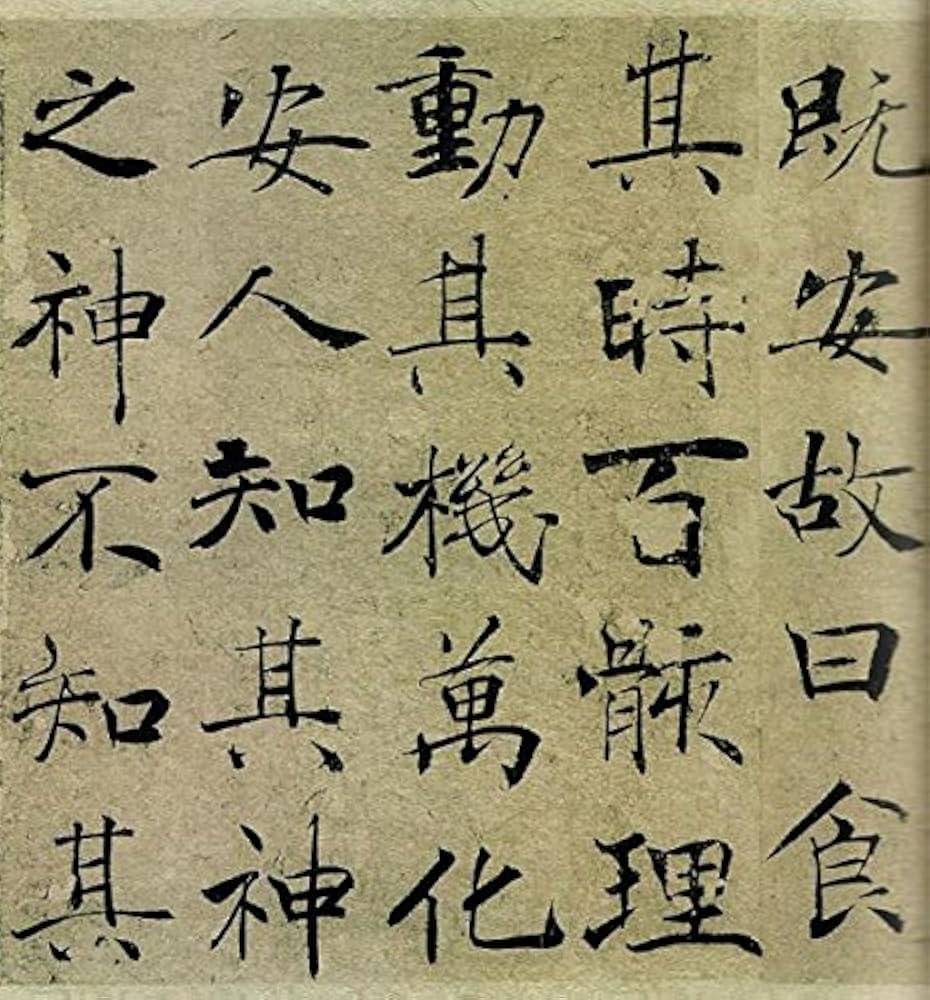 既安故曰食
其時百骸理
動其機萬化
安人知其神
之神不知其